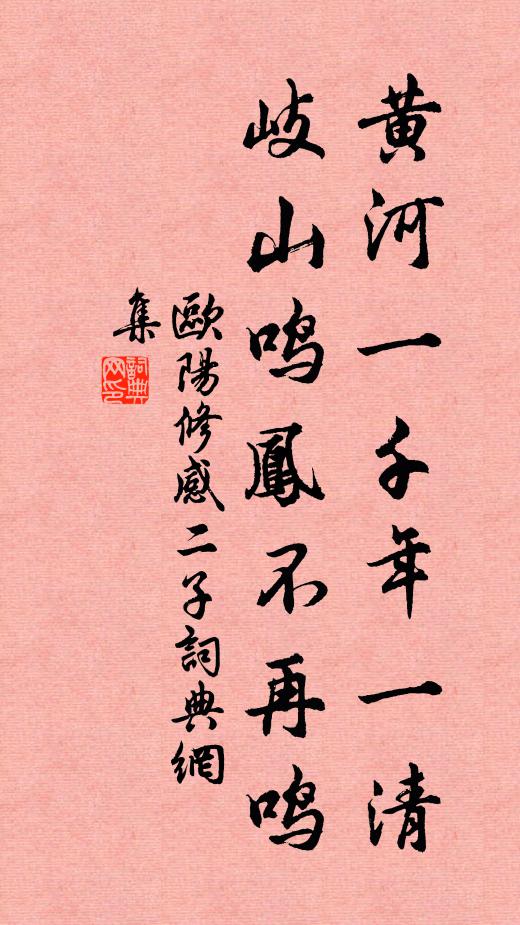 黄河一千年一清
岐山鸣鳳不再鸣
歐陽修感二子詞典網
集
詞典网印